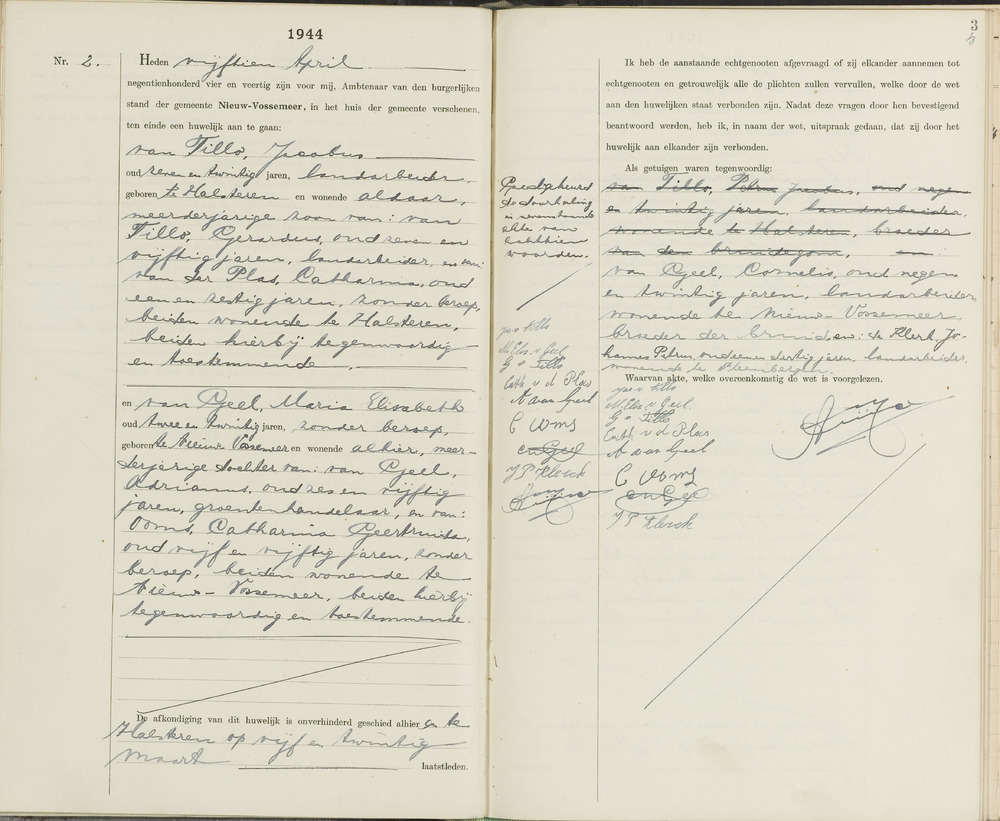 1944
Nr. 2.
Heden vijftien April
negentienhonderd vier en veertig zijn voor mij, Ambtenaar van den burgerlijken
stand der gemeente Nieuw-Vossemeer, in het huis der gemeente verschenen,
ten einde een huwelijk aan te gaan:
van Tillo, Jacobus
oud zeven en twintig jaren, landarbeider,
geboren te Halsteren en wonende aldaar,
meerderjarige zoon van: van
Tillo, Gerardus, oud zeven en
vijftig jaren, landarbeider, en van:
van der Plas, Catharina, oud
een en zestig jaren, zonder beroep,
beiden wonende te Halsteren,
beiden hierbij tegenwoordig
en toestemmende.
en van Geel, Maria Elisabeth
oud twee en twintig jaren, zonder beroep,
geboren te Nieuw-Vossemeer en wonende alhier, meer-
derjarige dochter van: van Geel,
Adrianus, oud zes en vijftig
jaren, groentenhandelaar, en van:
Ooms, Catharina Geertruida,
oud vijf en vijftig jaren, zonder
beroep, beiden wonende te
Nieuw-Vossemeer, beiden hierbij
tegenwoordig en toestemmende.
De afkondiging van dit huwelijk is onverhinderd geschied alhier en te
Halsteren op vijf en twintig
Maart laatstleden.
3
Ik heb de aanstaande echtgenooten afgevraagd of zij elkander aannemen tot
echtgenooten en getrouwelijk alle de plichten zullen vervullen, welke door de wet
aan den huwelijken staat verbonden zijn. Nadat deze vragen door hen bevestigend
beantwoord werden, heb ik, in naam der wet, uitspraak gedaan, dat zij door het
huwelijk aan elkander zijn verbonden.
Als getuigen waren tegenwoordig:
van Tillo, Petrus Jacobus, oud negen
en twintig jaren, landarbeider,
wonende te Halsteren, broeder
van den bruidegom, en
van Geel, Cornelis, oud negen
en twintig jaren, landarbeider,
wonende te Nieuw-Vossemeer
broeder der bruid, en: de Klerk, Jo-
hannes Petrus, oud een en dertig jaren, landarbeider,
wonende te Steenbergen.
Waarvan akte, welke overeenkomstig de wet is voorgelezen.
Goedgekeurd
de doorhaling
in nevenstaande
akte van
achttien
woorden.
M. Elis. v Geel
G v Tillo
Cath v d Plas
A van Geel
C Ooms
C v Geel
J P Klerck
M. Elis. v Geel.
G v Tillo
Cath v d Plas
A van Geel
C Ooms
C v Geel
J P Klerck